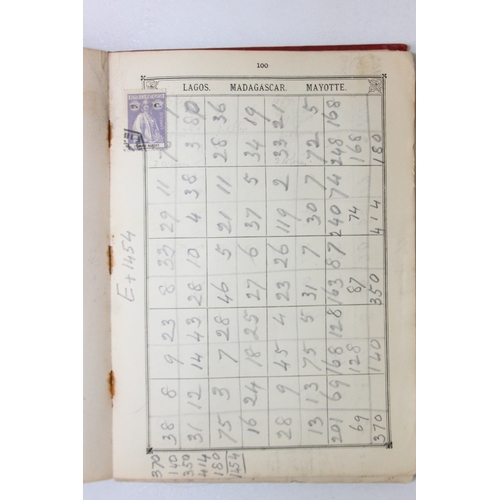 100
LAGOS. MADAGASCAR. MAYOTTE.
E+1454
38 8 9 23 8 33 29 11
31 12 14 43 28 10 4 38 3 80
75 3 7 28 46 5 21 11 28 36
16 24 18 25 27 6 37 5 34 19
28 9 45 4 23 26 119 2 33 21
13 13 75 5 31 7 30 7 72 5
201 69 168 128 163 87 240 74 248 168
69 128 87 74 168
370 140 350 414 180
370
140
350
414
180
1454